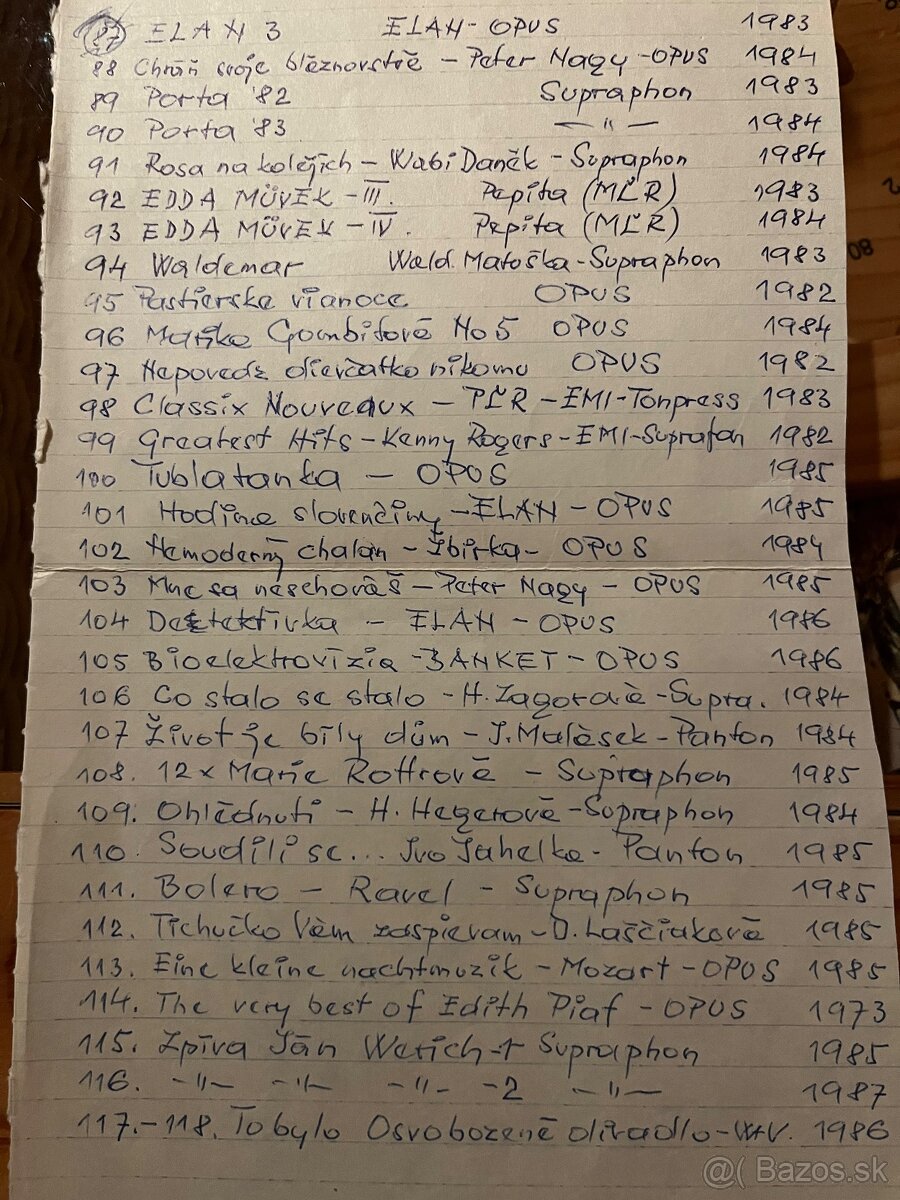 87 ELAN 3 ELAN - OPUS 1983
88 Chráň svoje bláznovstvá - Peter Nagy - OPUS 1984
89 Porta '82 Supraphon 1983
90 Porta '83 — " — 1984
91 Rosa na kolejích - Wabi Daněk - Supraphon 1984
92 EDDA MÜVEK - III. Pepita (MĽR) 1983
93 EDDA MÜVEK - IV. Pepita (MĽR) 1984
94 Waldemar Wald. Matuška - Supraphon 1983
95 Pastierske vianoce OPUS 1982
96 Marika Gombitová No 5 OPUS 1984
97 Nepovedz dievčatko nikomu OPUS 1982
98 Classix Nouveaux - PĽR - EMI-Tonpress 1983
99 Greatest Hits - Kenny Rogers - EMI-Suprafon 1982
100 Tublatanka - OPUS 1985
101 Hodina slovenčiny - ELAN - OPUS 1985
102 Nemoderný chalan - Žbirka - OPUS 1984
103 Mne sa neschováš - Peter Nagy - OPUS 1985
104 Detektívka - ELAN - OPUS 1986
105 Bioelektrovízia - BANKET - OPUS 1986
106 Co stalo se stalo - H. Zagorová - Supra. 1984
107 Život je bílý dům - J. Malásek - Panton 1984
108. 12x Marie Rottrová - Supraphon 1985
109. Ohlédnutí - H. Hegerová - Supraphon 1984
110 Soudili se... Ivo Jahelka - Panton 1985
111. Bolero - Ravel - Supraphon 1985
112. Tichučko Vám zaspievam - D. Laščiaková 1985
113. Eine kleine nachtmuzik - Mozart - OPUS 1985
114. The very best of Edith Piaf - OPUS 1973
115. Zpíva Ján Werich - 1 Supraphon 1985
116. - " - - " - - " - - 2 - " - 1987
117.-118. To bylo Osvobozené divadlo - V+V. 1986
80
2
@( Bazos.sk